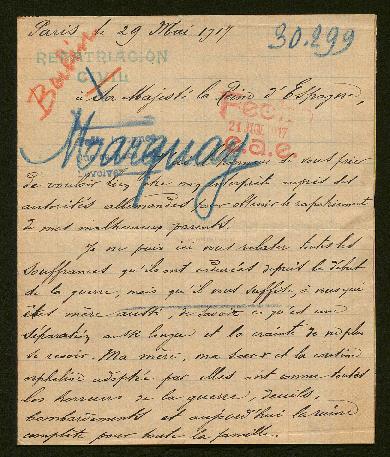 Paris le 29 Mai 1917
30.299
REPATRIACION
CIVIL
à Sa Majesté la Reine d'Espagne,
21 1917
Marquay
de vous prier
de vouloir bien être mon interprète auprès des
autorités allemandes pour obtenir le rapatriement
de mes malheureux parents.
Je ne puis ici vous relater toutes les
souffrances qu'ils ont endurées depuis le début
de la guerre, mais qu'il vous suffise, à vous qui
êtes mère aussi, de savoir ce qu'est une
séparation aussi longue et la crainte de ne plus
se revoir. Ma mère, ma sœur et la cousine
orpheline adoptée par elles ont connu toutes
les horreurs de la guerre, deuils,
bombardements et aujourd'hui la ruine
complète pour toute la famille.